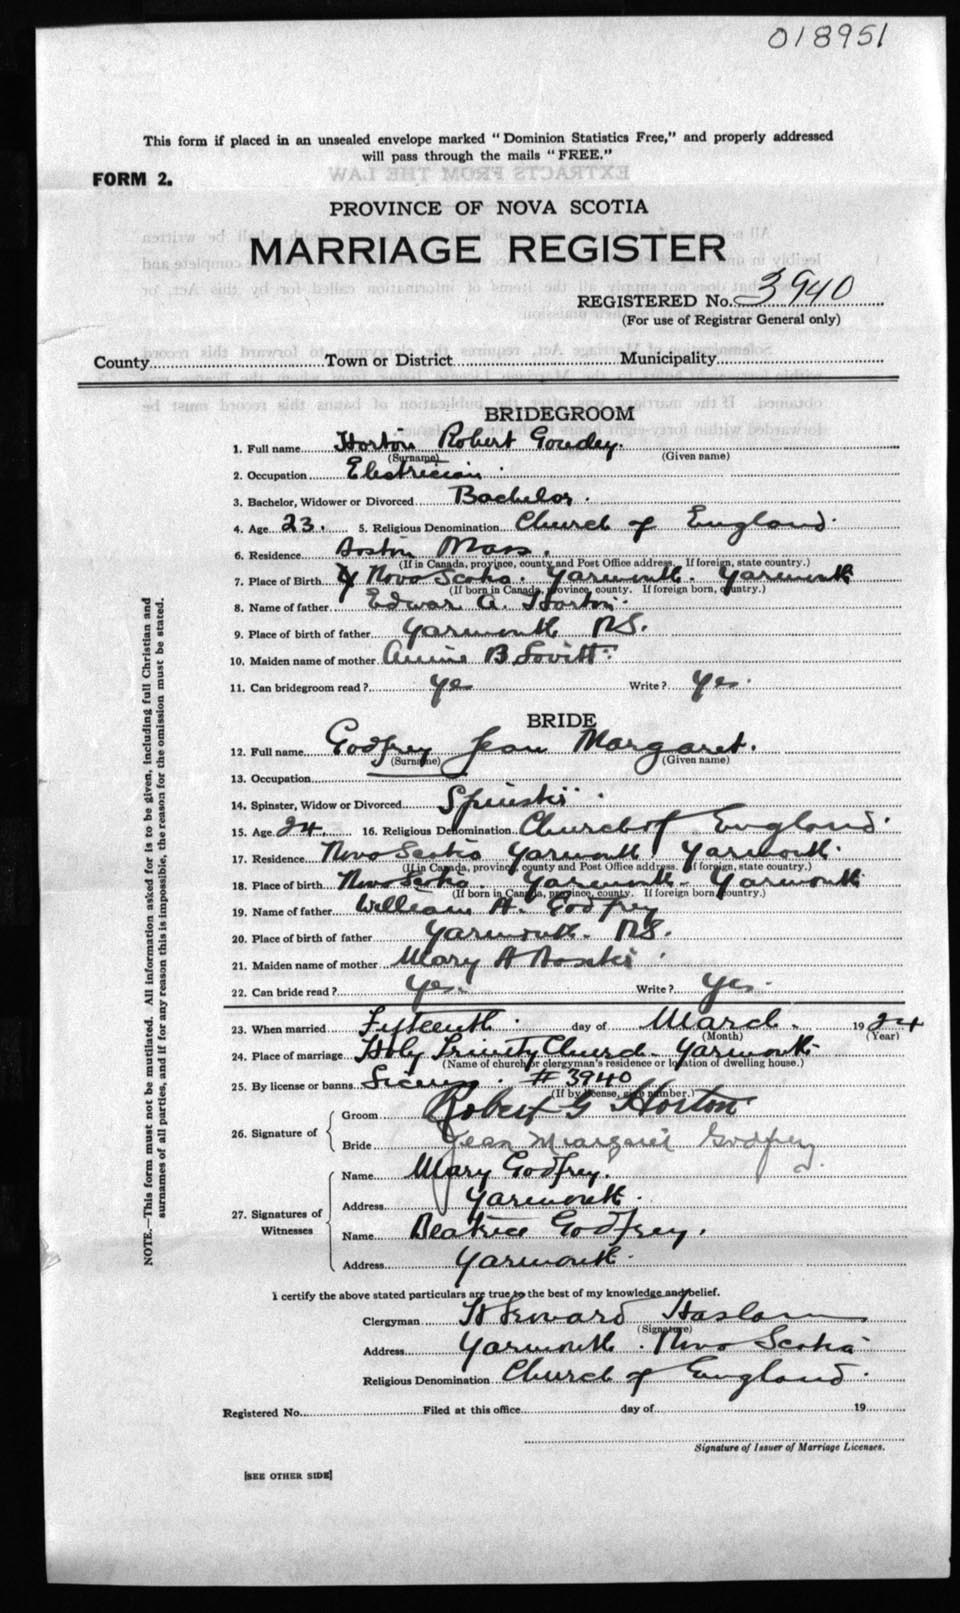 018951
This form if placed in an unsealed envelope marked "Dominion Statistics Free," and properly addressed
will pass through the mails "FREE."
FORM 2.
PROVINCE OF NOVA SCOTIA
MARRIAGE REGISTER
REGISTERED No. 3940
(For use of Registrar General only)
County Town or District Municipality
BRIDEGROOM
1. Full name Horton Robert Goudey.
(Surname) (Given name)
2. Occupation Electrician.
3. Bachelor, Widower or Divorced Bachelor.
4. Age 23. 5. Religious Denomination Church of England.
6. Residence Boston Mass.
(If in Canada, province, county and Post Office address. If foreign, state country.)
7. Place of Birth Nova Scotia. Yarmouth. Yarmouth
(If born in Canada, province, county. If foreign born, country.)
8. Name of father Edwar A. Horton.
9. Place of birth of father Yarmouth NS.
10. Maiden name of mother Annie B Lovitt.
11. Can bridegroom read? Yes Write? Yes.
BRIDE
12. Full name Godfrey Jean Margaret.
(Surname) (Given name)
13. Occupation
14. Spinster, Widow or Divorced Spinster.
15. Age 24. 16. Religious Denomination Church of England.
17. Residence Nova Scotia Yarmouth Yarmouth.
(If in Canada, province, county and Post Office address. If foreign, state country.)
18. Place of birth Nova Scotia. Yarmouth. Yarmouth
(If born in Canada, province, county. If foreign born, country.)
19. Name of father William H. Godfrey
20. Place of birth of father Yarmouth. NS.
21. Maiden name of mother Mary A
22. Can bride read? Yes. Write? Yes.
23. When married Fifteenth. day of March. 1924
(Month) (Year)
24. Place of marriage Holy Trinity Church. Yarmouth
(Name of church or clergyman's residence or location of dwelling house.)
25. By license or banns License. # 3940
(If by license, give number.)
26. Signature of
Groom Robert G Horton
Bride Jean Margaret Godfrey.
27. Signatures of Witnesses
Name Mary Godfrey.
Address Yarmouth.
Name Beatrice Godfrey.
Address Yarmouth.
I certify the above stated particulars are true to the best of my knowledge and belief.
Clergyman Haslam
(Signature)
Address Yarmouth. Nova Scotia
Religious Denomination Church of England.
Registered No. Filed at this office day of 19
Signature of Issuer of Marriage Licenses.
[SEE OTHER SIDE]
NOTE.—This form must not be mutilated. All information asked for is to be given, including full Christian and
surnames of all parties, and if for any reason this is impossible, the reason for the omission must be stated.